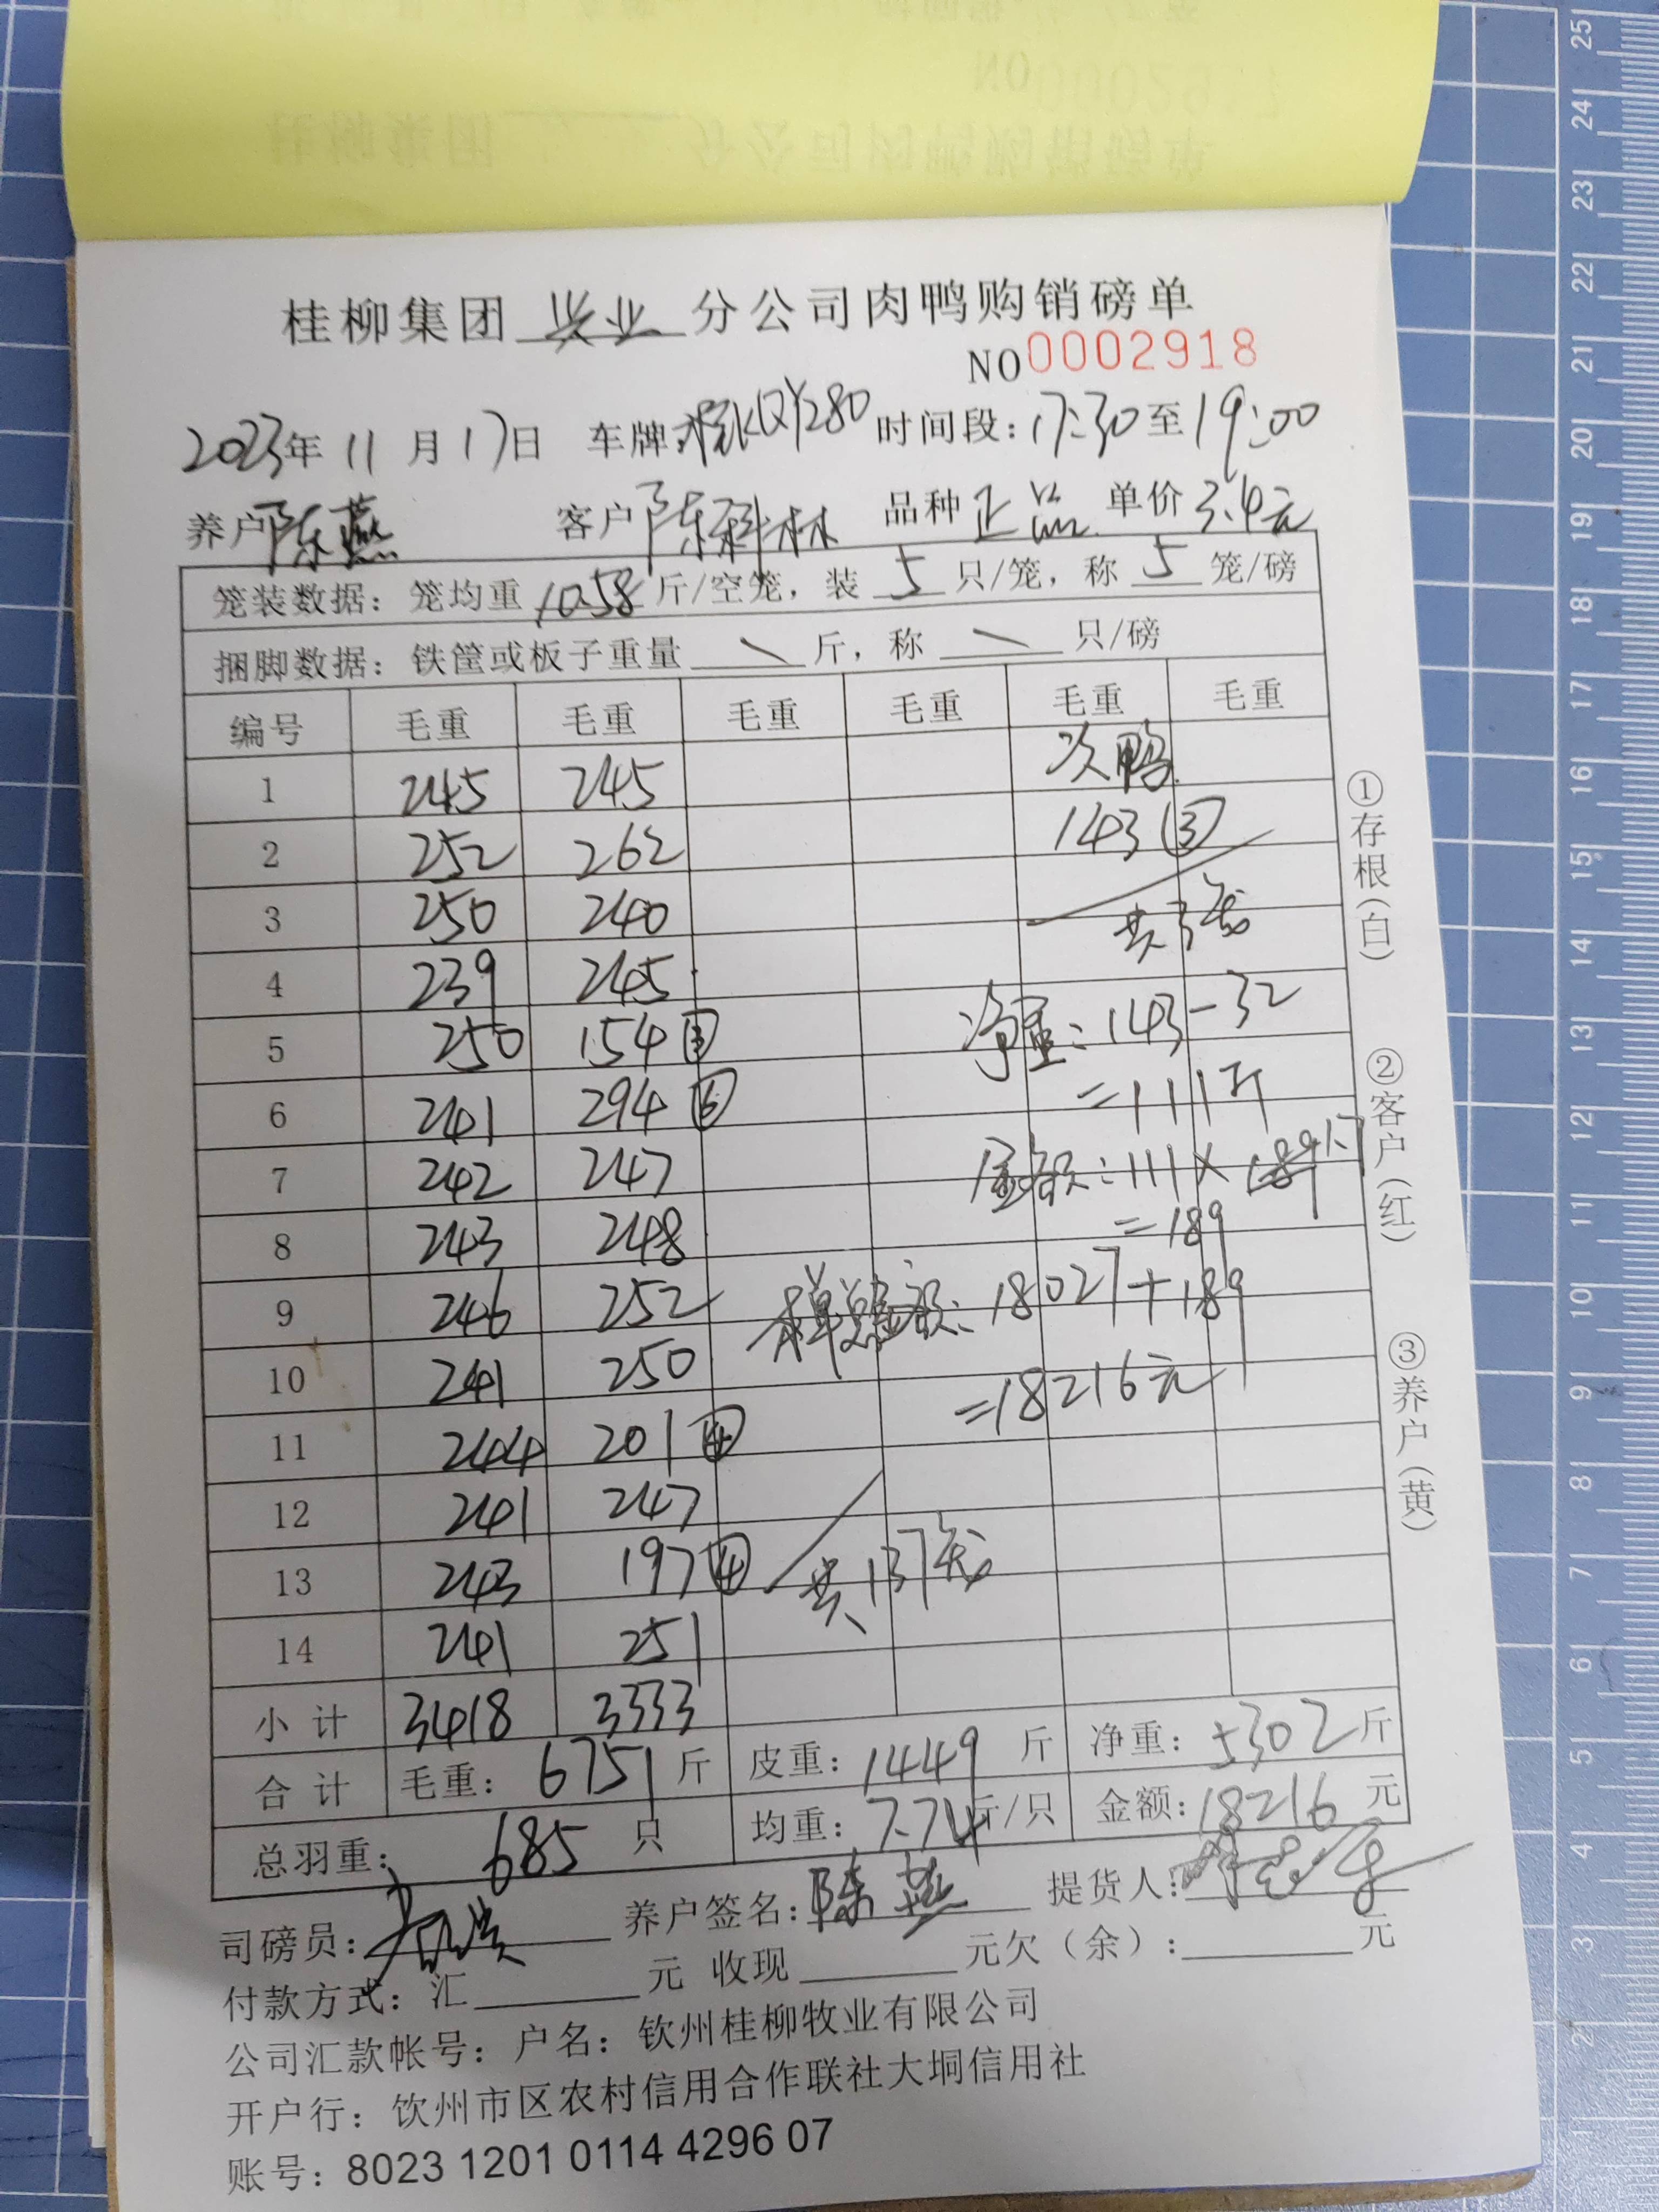 桂柳集团 兴业 分公司肉鸭购销磅单
NO 0002918
2023年 11 月 17日 车牌:桂KQY280 时间段:17:30至19:00
养户 陈燕 客户 陈科林 品种 正品 单价 3.4元
笼装数据：笼均重 10.58 斤/空笼，装 5 只/笼，称 5 笼/磅
捆脚数据：铁筐或板子重量 \ 斤，称 \ 只/磅
编号 毛重 毛重 毛重 毛重 毛重 毛重
1 245 245 次鸭
2 252 262 143 ③
3 250 240 共3笼
4 239 245 净重:143-32
5 250 154 ③
=111斤
6 241 294 ⑥
7 242 247 金额:111×1.7
8 243 248 =189
9 246 252 本单总金额:18027+189
10 241 250 =18216元
11 244 201 ④
12 241 247
13 243 197 ④ 共137笼
14 241 251
小 计 3418 3333
合 计 毛重：6751斤 皮重：1449 斤 净重：5302斤
总羽重： 685 只 均重：7.74斤/只 金额:18216 元
司磅员： 养户签名:陈燕 提货人:
付款方式：汇 元 收现 元欠（余）: 元
公司汇款帐号：户名：钦州桂柳牧业有限公司
开户行：钦州市区农村信用合作联社大垌信用社
账号：8023 1201 0114 4296 07
①存根(白) ②客户(红) ③养户(黄)